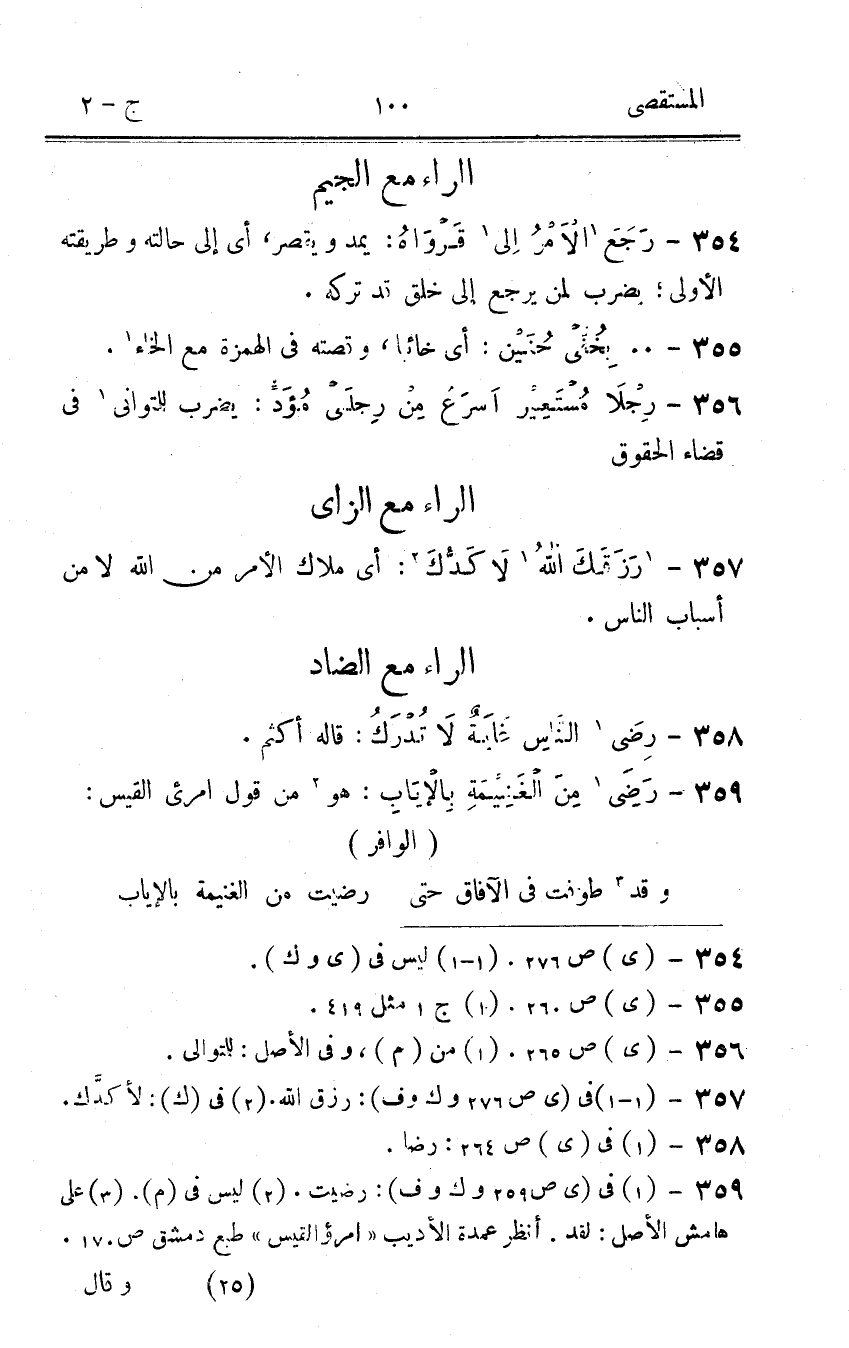 المستقصى ١٠٠ ج - ٢
الراء مع الجيم
٣٥٤ - رَجَعَ ١الْاَمْرُ اِلى١ قَرْوَاهُ: يمد و يقصر، أى إلى حالته و طريقته
الأولى؛ يضرب لمن يرجع إلى خلق قد تركه .
٣٥٥ - ٠٠ بِخُفَّىْ حُنَيْنٍ : أى خائبا، و قصته فى الهمزة مع الخاء١ .
٣٥٦ - رِجْلَا مُسْتَعِيْرٍ اَسرَعُ مِنْ رِجلَىْ مُؤَدٍّ : يضرب للتوانى١ فى
قضاء الحقوق
الراء مع الزاى
٣٥٧ - ١رَزَقَكَ اللهُ١ لَا كَدُّكَ٢ : أى ملاك الأمر من الله لا من
أسباب الناس .
الراء مع الضاد
٣٥٨ - رِضَى١ النَّاسِ غَايَةٌ لَا تُدْرَكُ : قاله أكثم .
٣٥٩ - رَضِىَ١ مِنَ الْغَنِيْمَةِ بِالْإِيَابِ : هو٢ من قول امرئ القيس :
( الوافر )
و قد٣ طوفت فى الآفاق حتى رضيت من الغنيمة بالإياب
٣٥٤ - ( ى ) ص ٢٧٦ . (١-١) ليس فى ( ى و ك ) .
٣٥٥ - ( ى ) ص ٢٦٠ . (١) ج ١ مثل ٤١٩ .
٣٥٦ - ( ى ) ص ٢٦٥ . (١) من ( م ) ، و فى الأصل : للتوالى .
٣٥٧ - (١-١)فى (ى ص ٢٧٦ و ك وف) : رزق الله.(٢) فى (ك) : لأكدَّك.
٣٥٨ - (١) فى ( ى ) ص ٢٦٤ : رضا .
٣٥٩ - (١) فى (ى ص٢٥٩ و ك و ف) : رضيت . (٢) ليس فى (م). (٣) على
هامش الأصل : لقد . أنظر عمدة الأديب « امرؤ القيس » طبع دمشق ص١٧٠ .
(٢٥) و قال